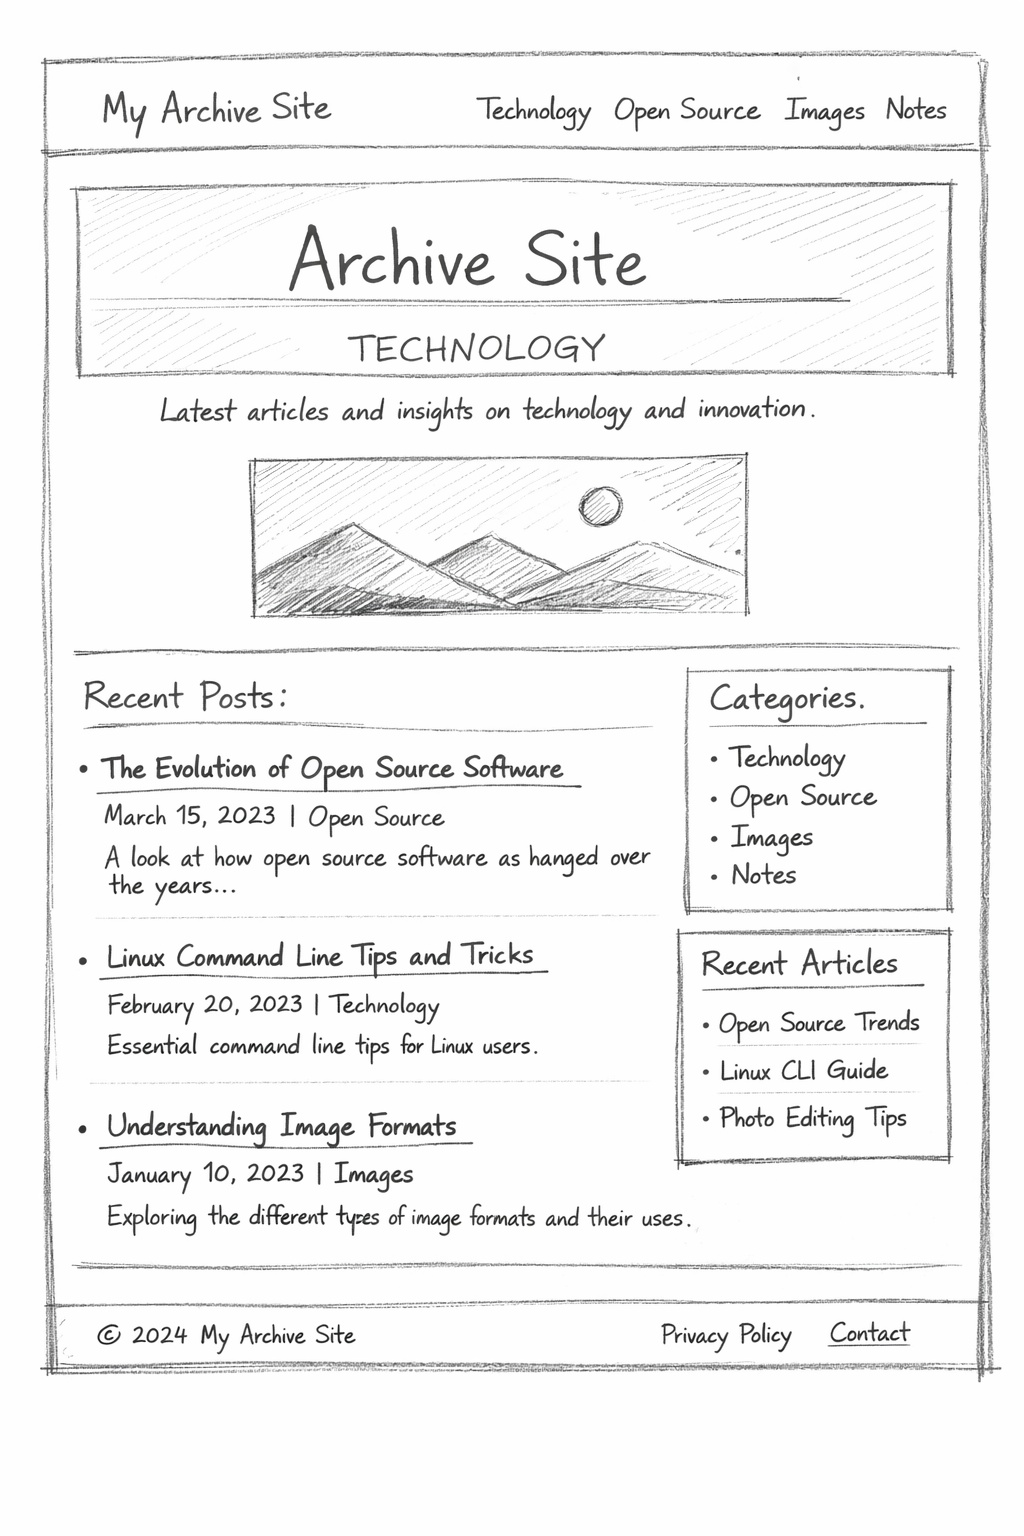 My Archive Site
Technology Open Source Images Notes
Archive Site
TECHNOLOGY
Latest articles and insights on technology and innovation.
Recent Posts:
• The Evolution of Open Source Software
March 15, 2023 | Open Source
A look at how open source software as hanged over
the years...
• Linux Command Line Tips and Tricks
February 20, 2023 | Technology
Essential command line tips for Linux users.
• Understanding Image Formats
January 10, 2023 | Images
Exploring the different types of image formats and their uses.
Categories.
• Technology
• Open Source
• Images
• Notes
Recent Articles
• Open Source Trends
• Linux CLI Guide
• Photo Editing Tips
© 2024 My Archive Site
Privacy Policy Contact